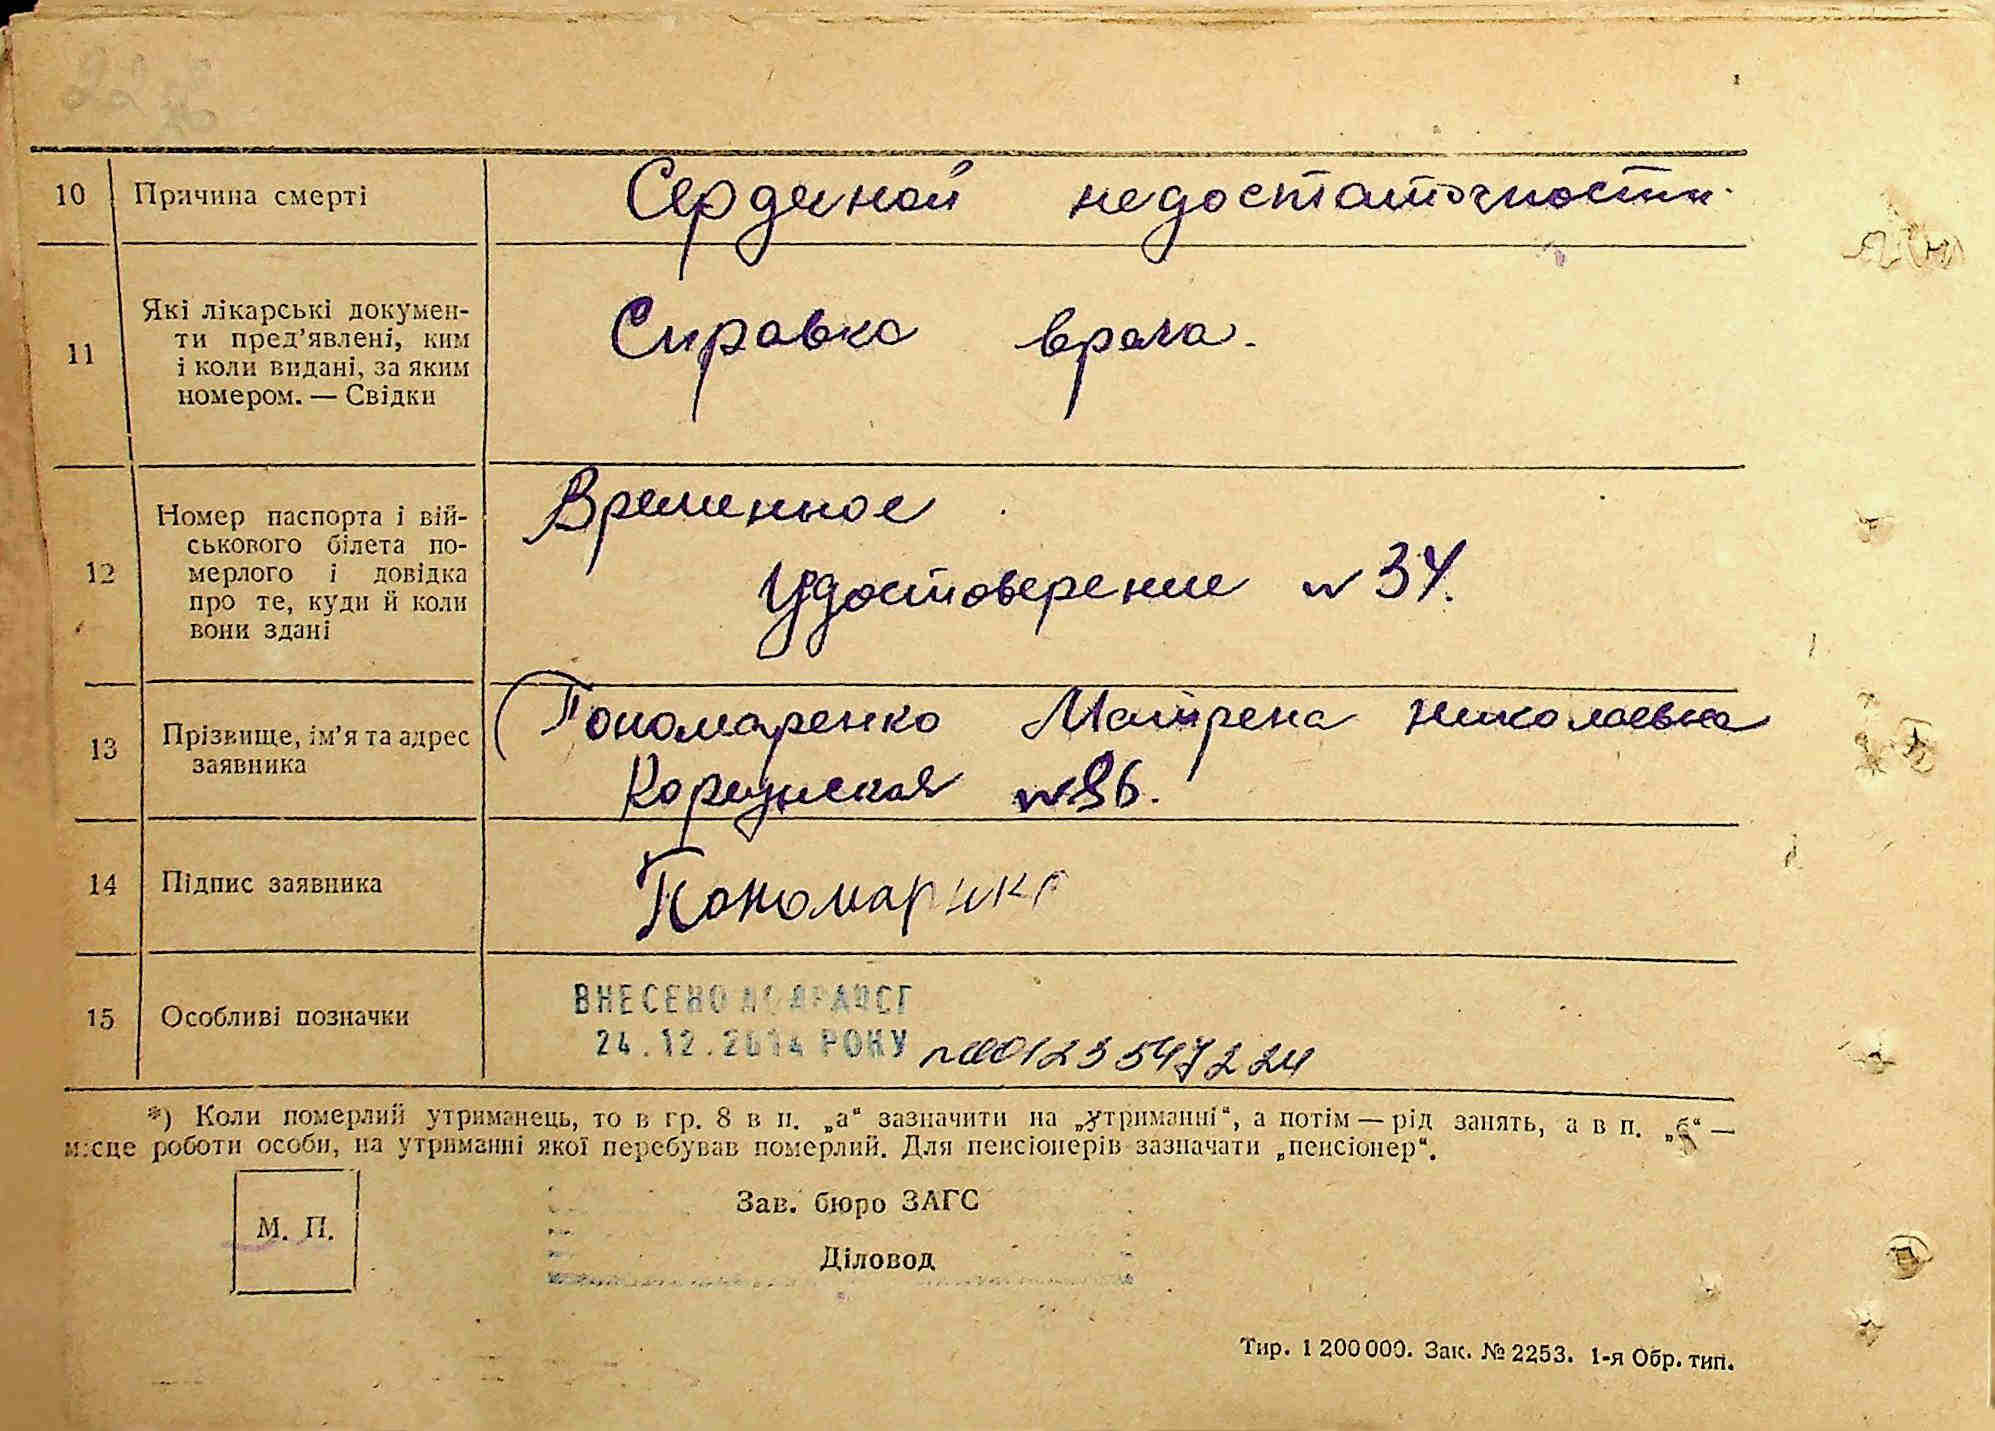 10 Причина смерті Сердечной недостаточности.
11 Які лікарські докумен-
ти пред’явлені, ким
і коли видані, за яким
номером. — Свідки
Справка врача.
12 Номер паспорта і вій-
ськового білета по-
мерлого і довідка
про те, куди й коли
вони здані
Временное
Удостоверение № 34.
13 Прізвище, ім’я та адрес
заявника
Пономаренко Матрена Николаевна
№ 86.
14 Підпис заявника
15 Особливі позначки
ВНЕСЕНО ДО ДРАЦСГ
24.12.2014 РОКУ №00123547224
*) Коли померлий утриманець, то в гр. 8 в п. „а“ зазначити на „утриманні“, а потім — рід занять, а в п. „б“ —
місце роботи особи, на утриманні якої перебував померлий. Для пенсіонерів зазначати „пенсіонер“.
М. П.
Зав. бюро ЗАГС
Діловод
Тир. 1 200 000. Зак. № 2253. 1-я Обр. тип.